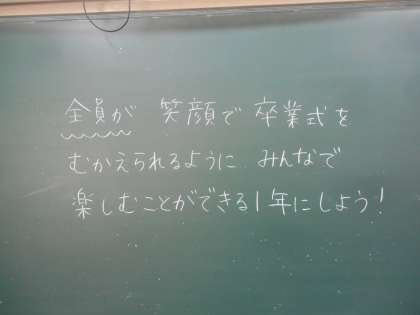 全員が 笑顔で 卒業式を
むかえられるように みんなで
楽しむことができる1年にしよう!